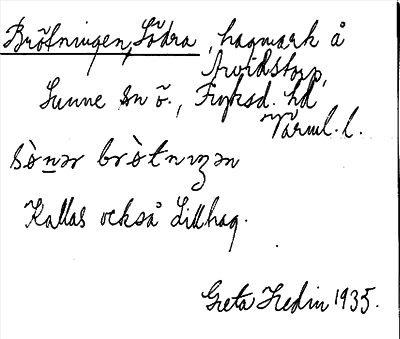 Brötningen, Södra, hagmark å
Arvidstorp,
Sunne sn ö., Fryksd. hd
Värml. l.
sò̀nər brò̀tnıŋən
Kallas också Lillhag.
Greta Hedin 1935.